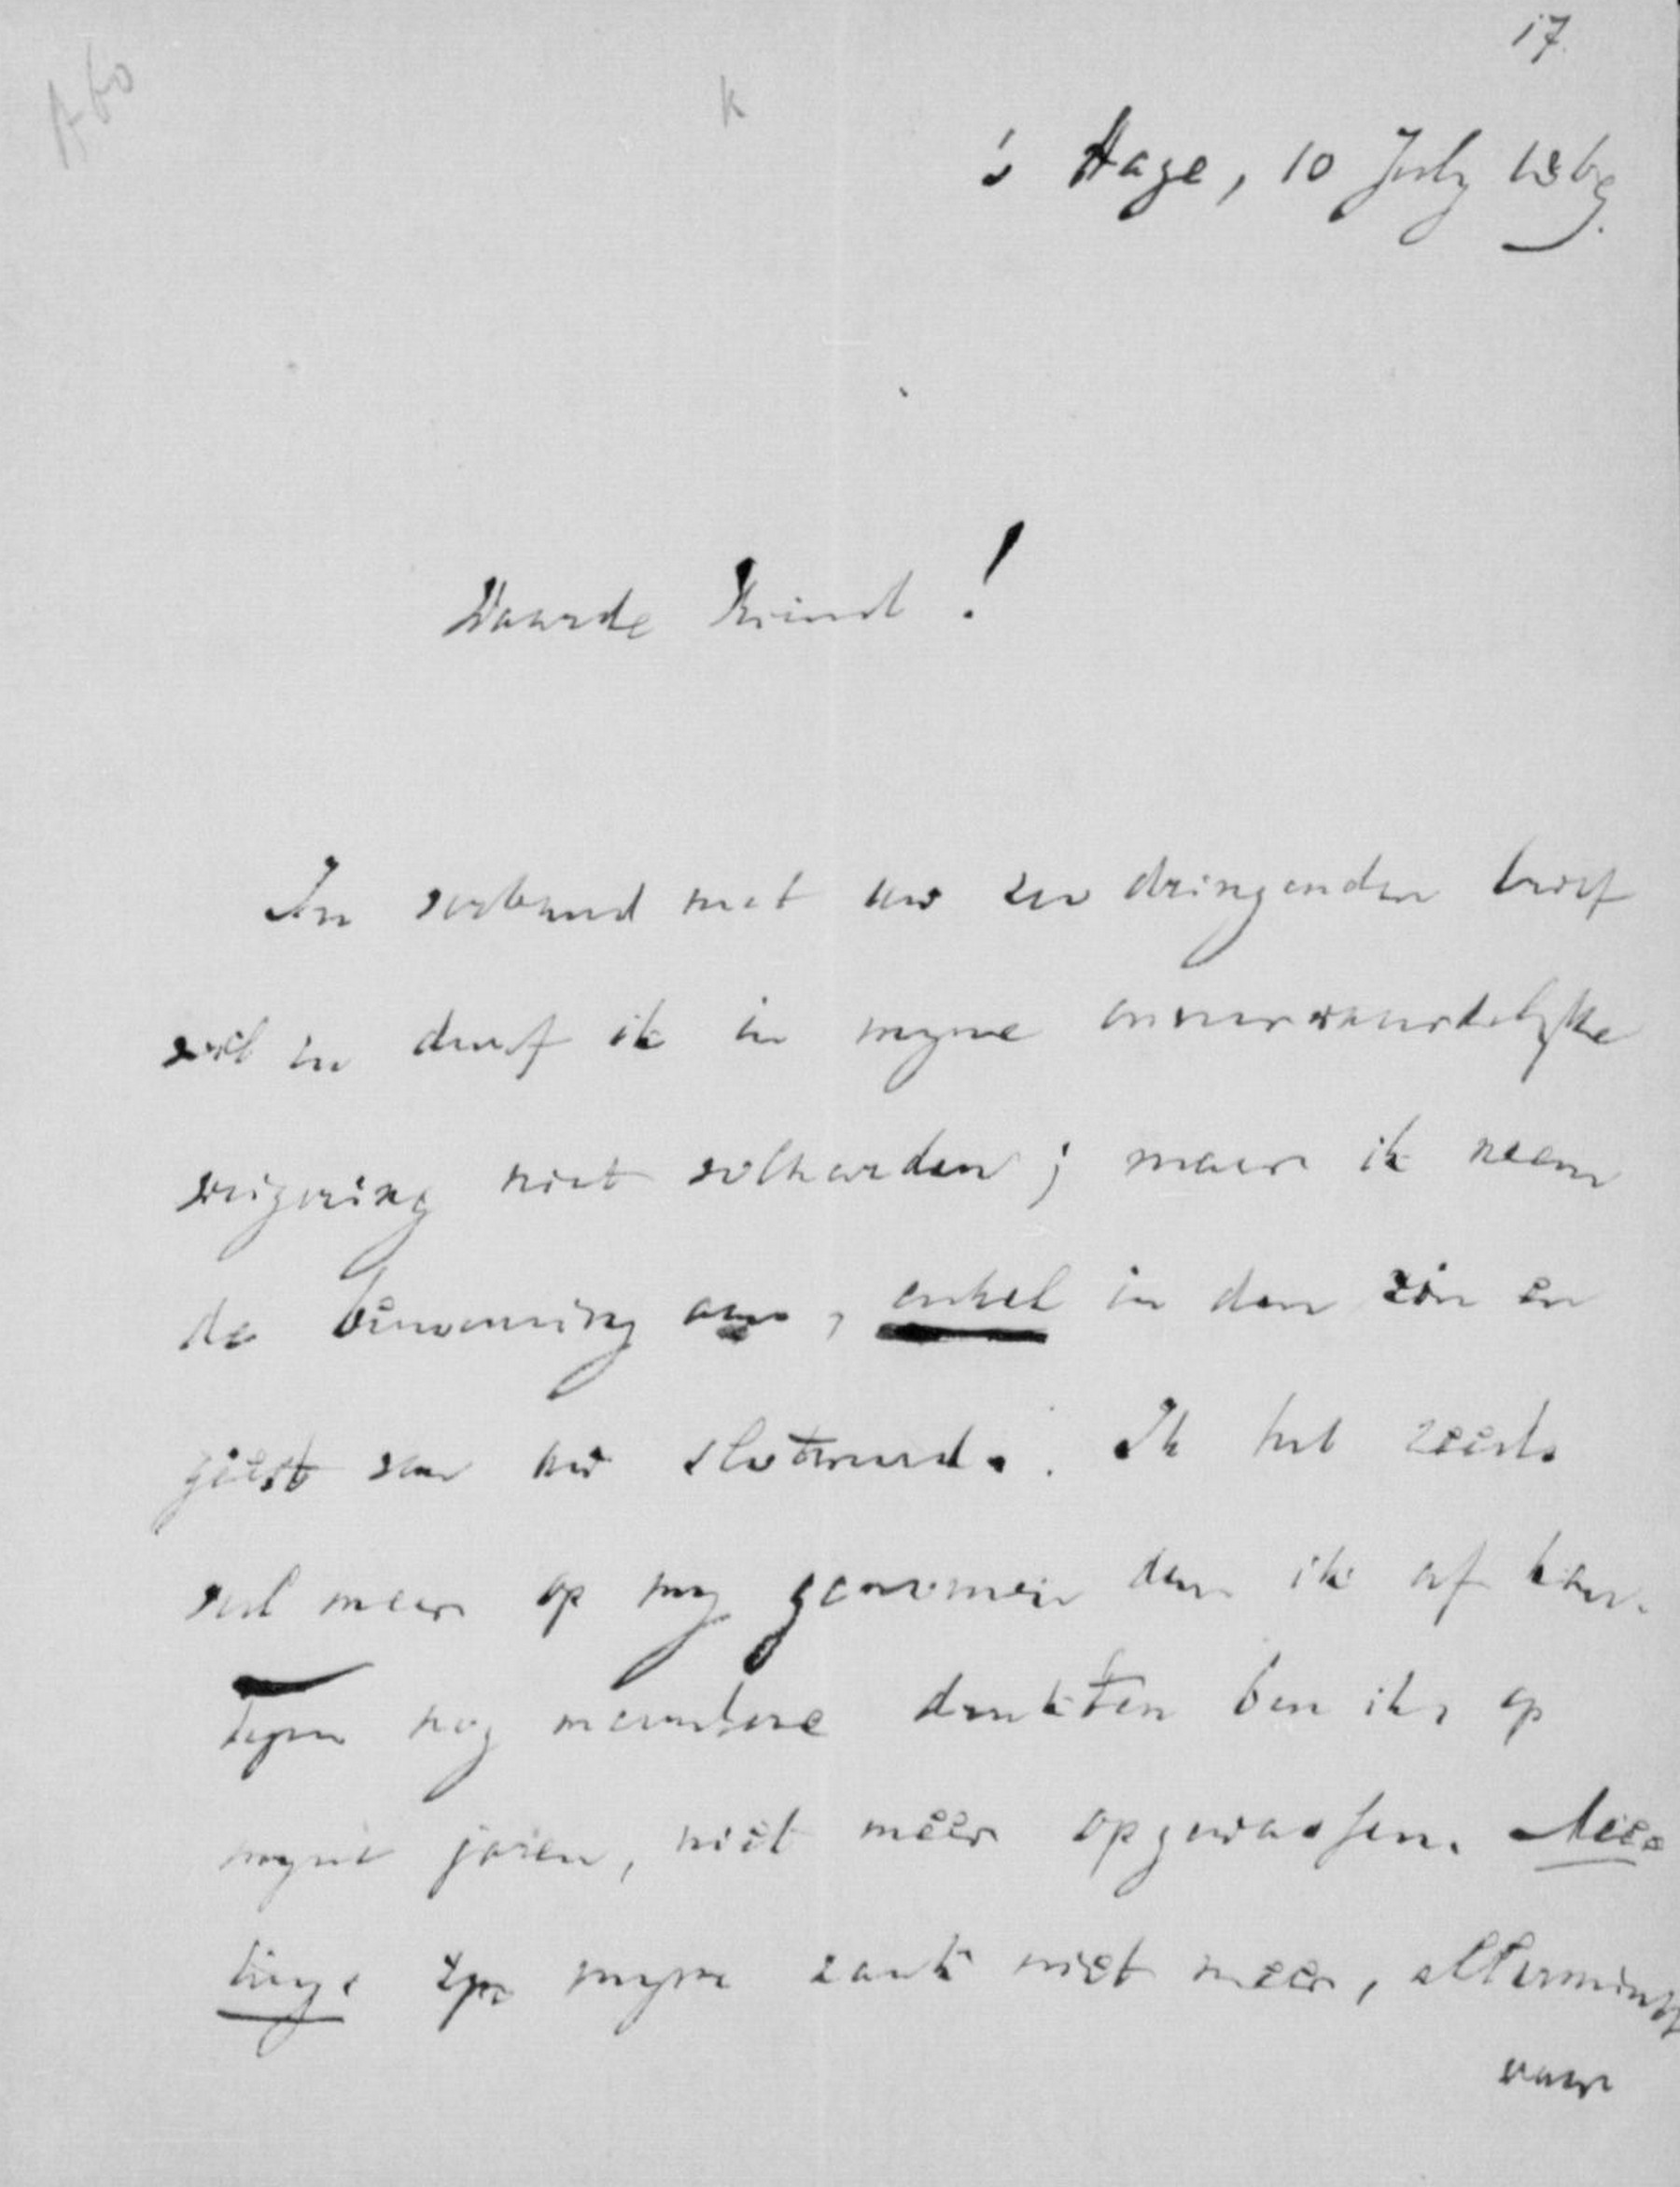 17.
A60
k
's Hage, 10 July 1869.
Waarde Vriend!
In verband met uw zeer dringenden brief
wil en durf ik in myne onverwrikbare
weigering niet volharden; maar ik neem
de benoeming aan, enkel in den zin en
geest van uw slotwoord. Ik heb reeds
veel meer op my genomen dan ik af kan.
Tegen nog meerdere drukten ben ik, op
myne jaren, niet meer opgewassen. Mee-
tings zyn myne zaak niet meer, allerminst
waar